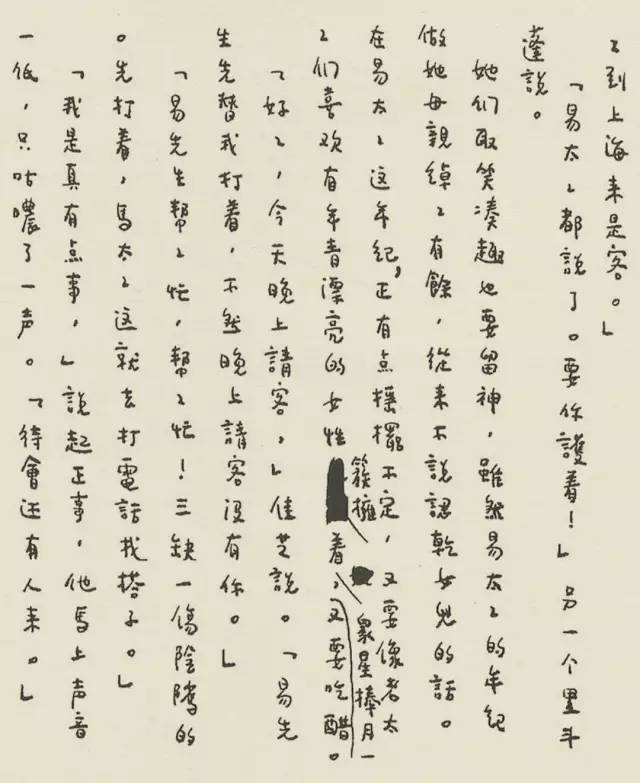 〻到上海来是客。」
「易太〻都說了。要你護着！」另一个黑斗
蓬說。
她们取笑凑趣也要留神，雖然易太〻的年紀
做她母親綽〻有餘，從来不說認乾女兒的話。
在易太〻这年纪，正有点搖擺不定，又要像老太
〻们喜欢有年青漂亮的女性簇擁着，衆星捧月一又要吃醋。
「好〻，今天晚上請客，」佳芝說。「易先
生先替我打着，不然晚上請客没有你。」
「易先生幫〻忙，幫〻忙！三缺一傷陰騭的
。先打着，馬太〻这就去打電話找搭子。」
「我是真有点事，」說起正事，他馬上声音
一低，只咕噥了一声。「待會还有人来。」